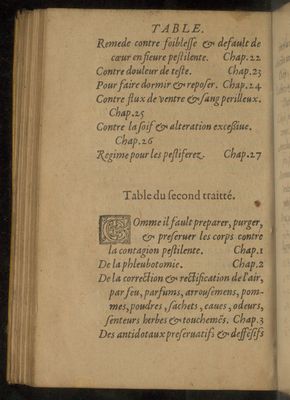 TABLE.
Remede contre foiblesse & default de
cœur en fieure pestilente. Chap.22
Contre douleur de teste. Chap.23
Pour faire dormir & reposer. Chap.24
Contre flux de ventre & sang perilleux.
Chap.25
Contre la soif & alteration excessiue.
Chap.26
Regime pour les pestiferez. Chap.27
Table du second traitté.
Comme il fault preparer, purger,
& preseruer les corps contre
la contagion pestilente. Chap.1
De la phleubotomie. Chap.2
De la correction & rectification de l'air,
par feu, parfums, arrousemens, pom-
mes, poudres, sachets, eaues, odeurs,
senteurs herbes & touchemēs. Chap.3
Des antidotaux preseruatifs & deffēsifs